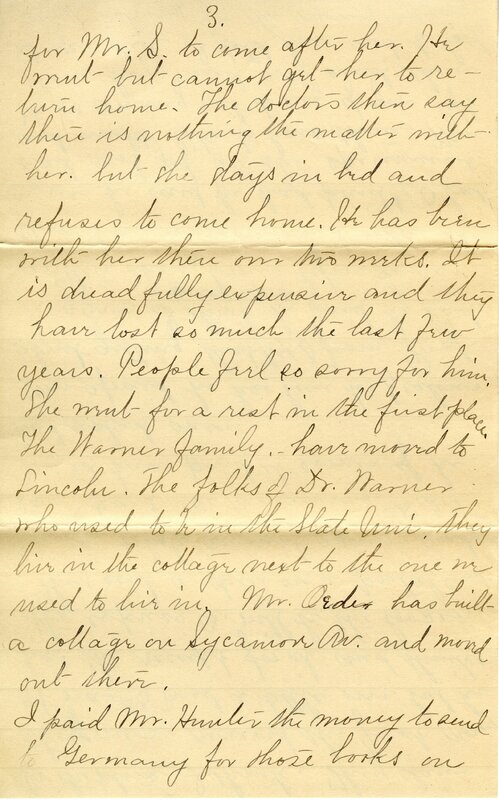 3.
for Mr. S. to come after her. He
went but cannot get her to re-
turn home. The doctors then say
there is nothing the matter with
her. but she stays in bed and
refuses to come home. He has been
with her there over two weeks. It
is dreadfully expensive and they
have lost so much the last few
years. People feel so sorry for him.
She went for a rest in the first place.
The Warner family. - have moved to
Lincoln. The folks of Dr. Warner
who used to be in the State Uni. They
live in the cottage next to the one we
used to live in. Mr. has built
a cottage on Sycamore Av. and moved
out there.
I paid Mr. Hunter the money to send
to Germany for those books on